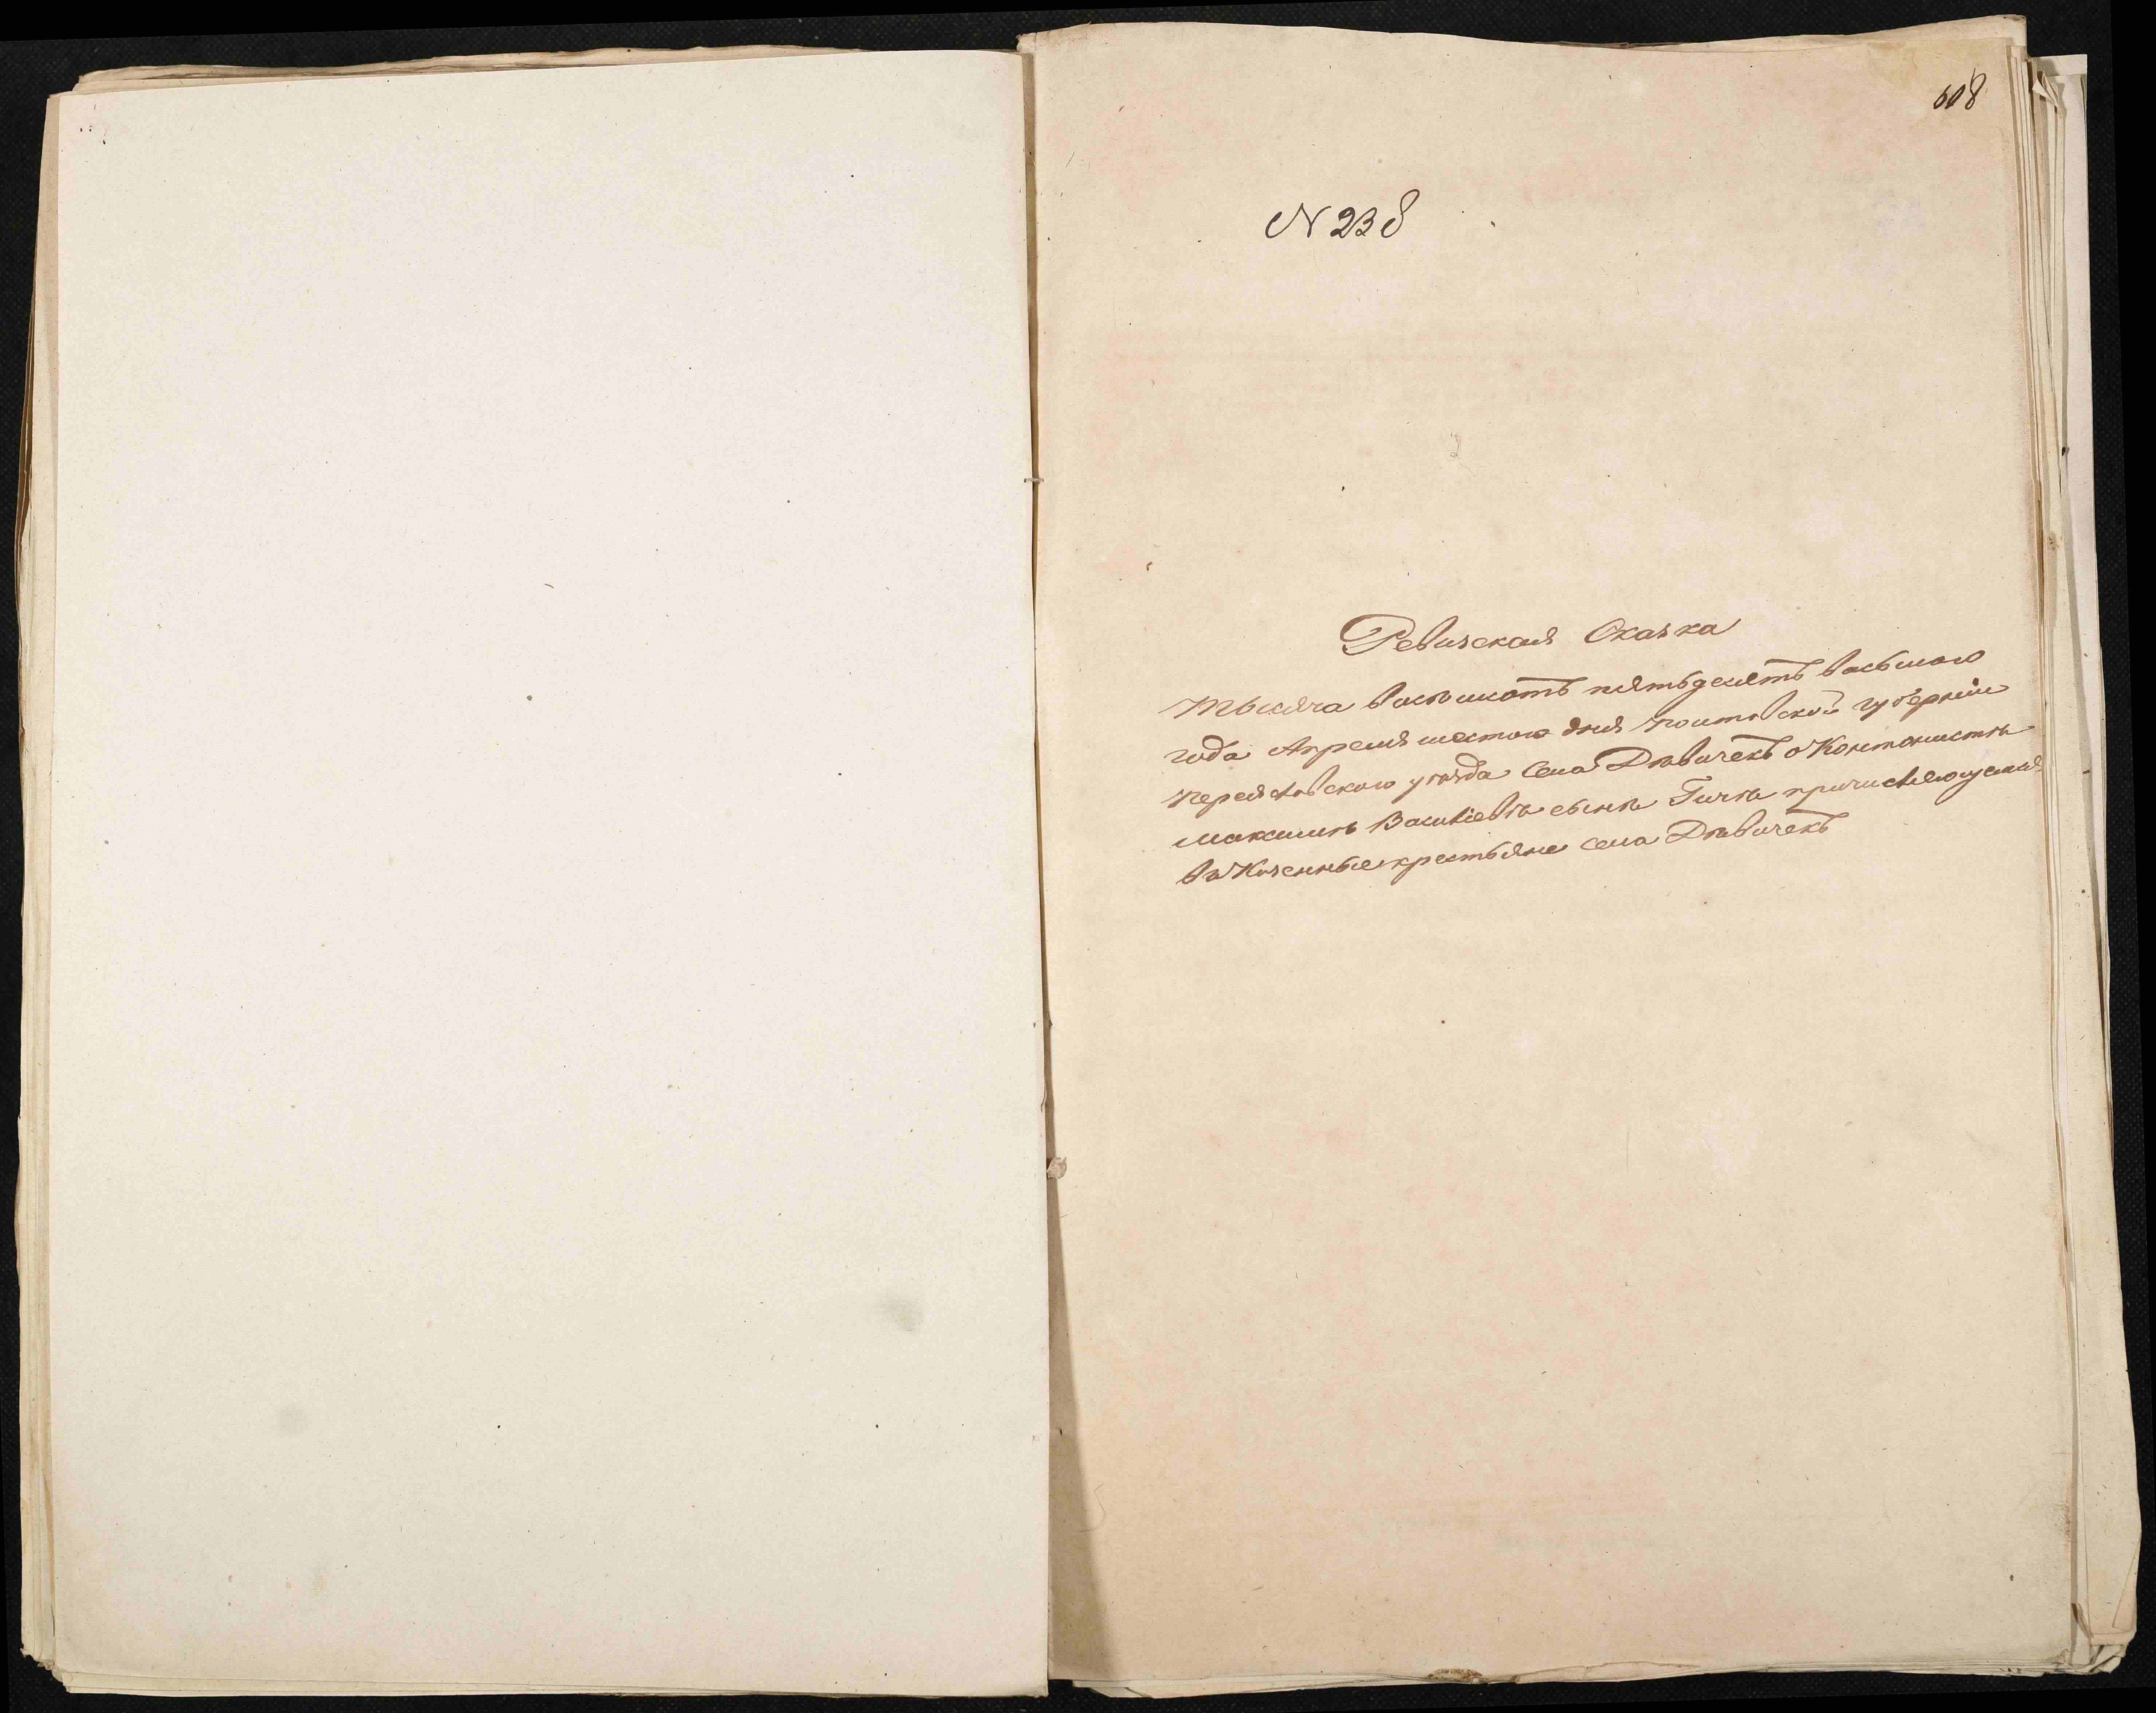 608
N 238
Ревизская Сказка
тысяча восемсотъ пятьдесятъ восьмого
года Апреля шестого дня полтовской губернiи
переясловского уезда села Девичекъ о Контонисте
максиме Василiеве сыне Гиче причисляющемся
въ Казенные крестьяне села Девичекъ